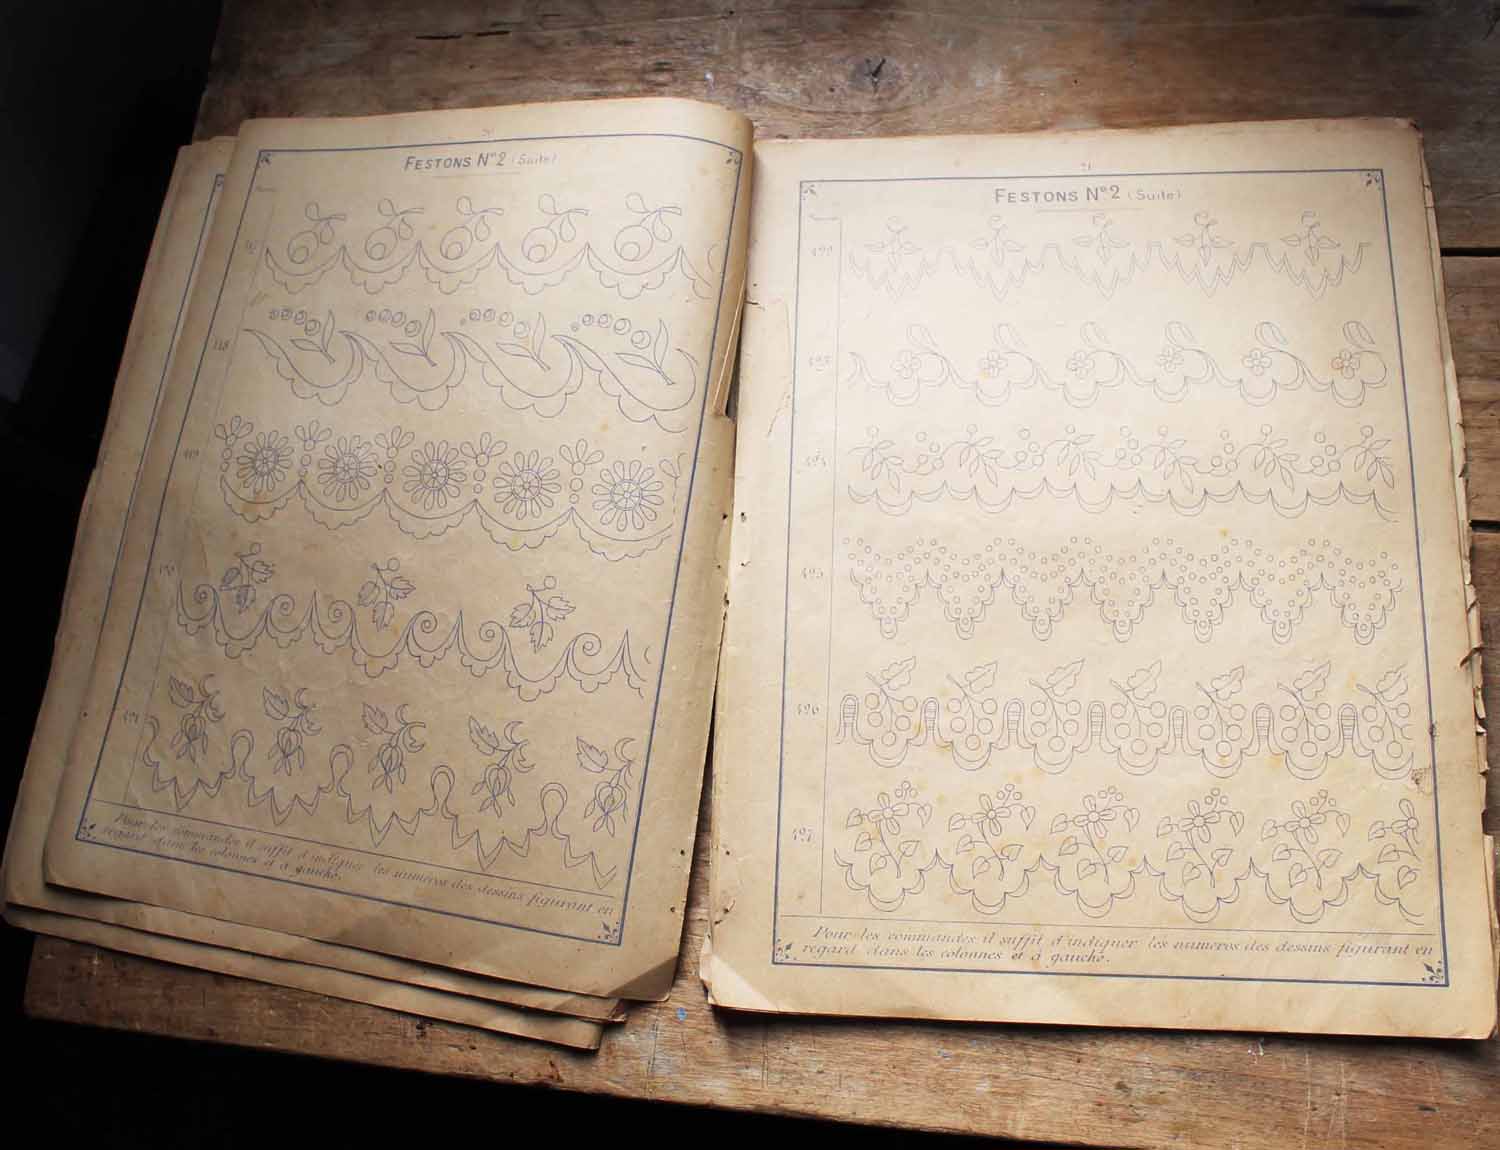 20
FESTONS Nº 2 (Suite)
118
119
120
121
Pour les commandes il suffit d'indiquer les numéros des dessins figurant en
regard dans les colonnes et à gauche.
21
FESTONS Nº 2 (Suite)
425
426
427
Pour les commandes il suffit d'indiquer les numéros des dessins figurant en
regard dans les colonnes et à gauche.